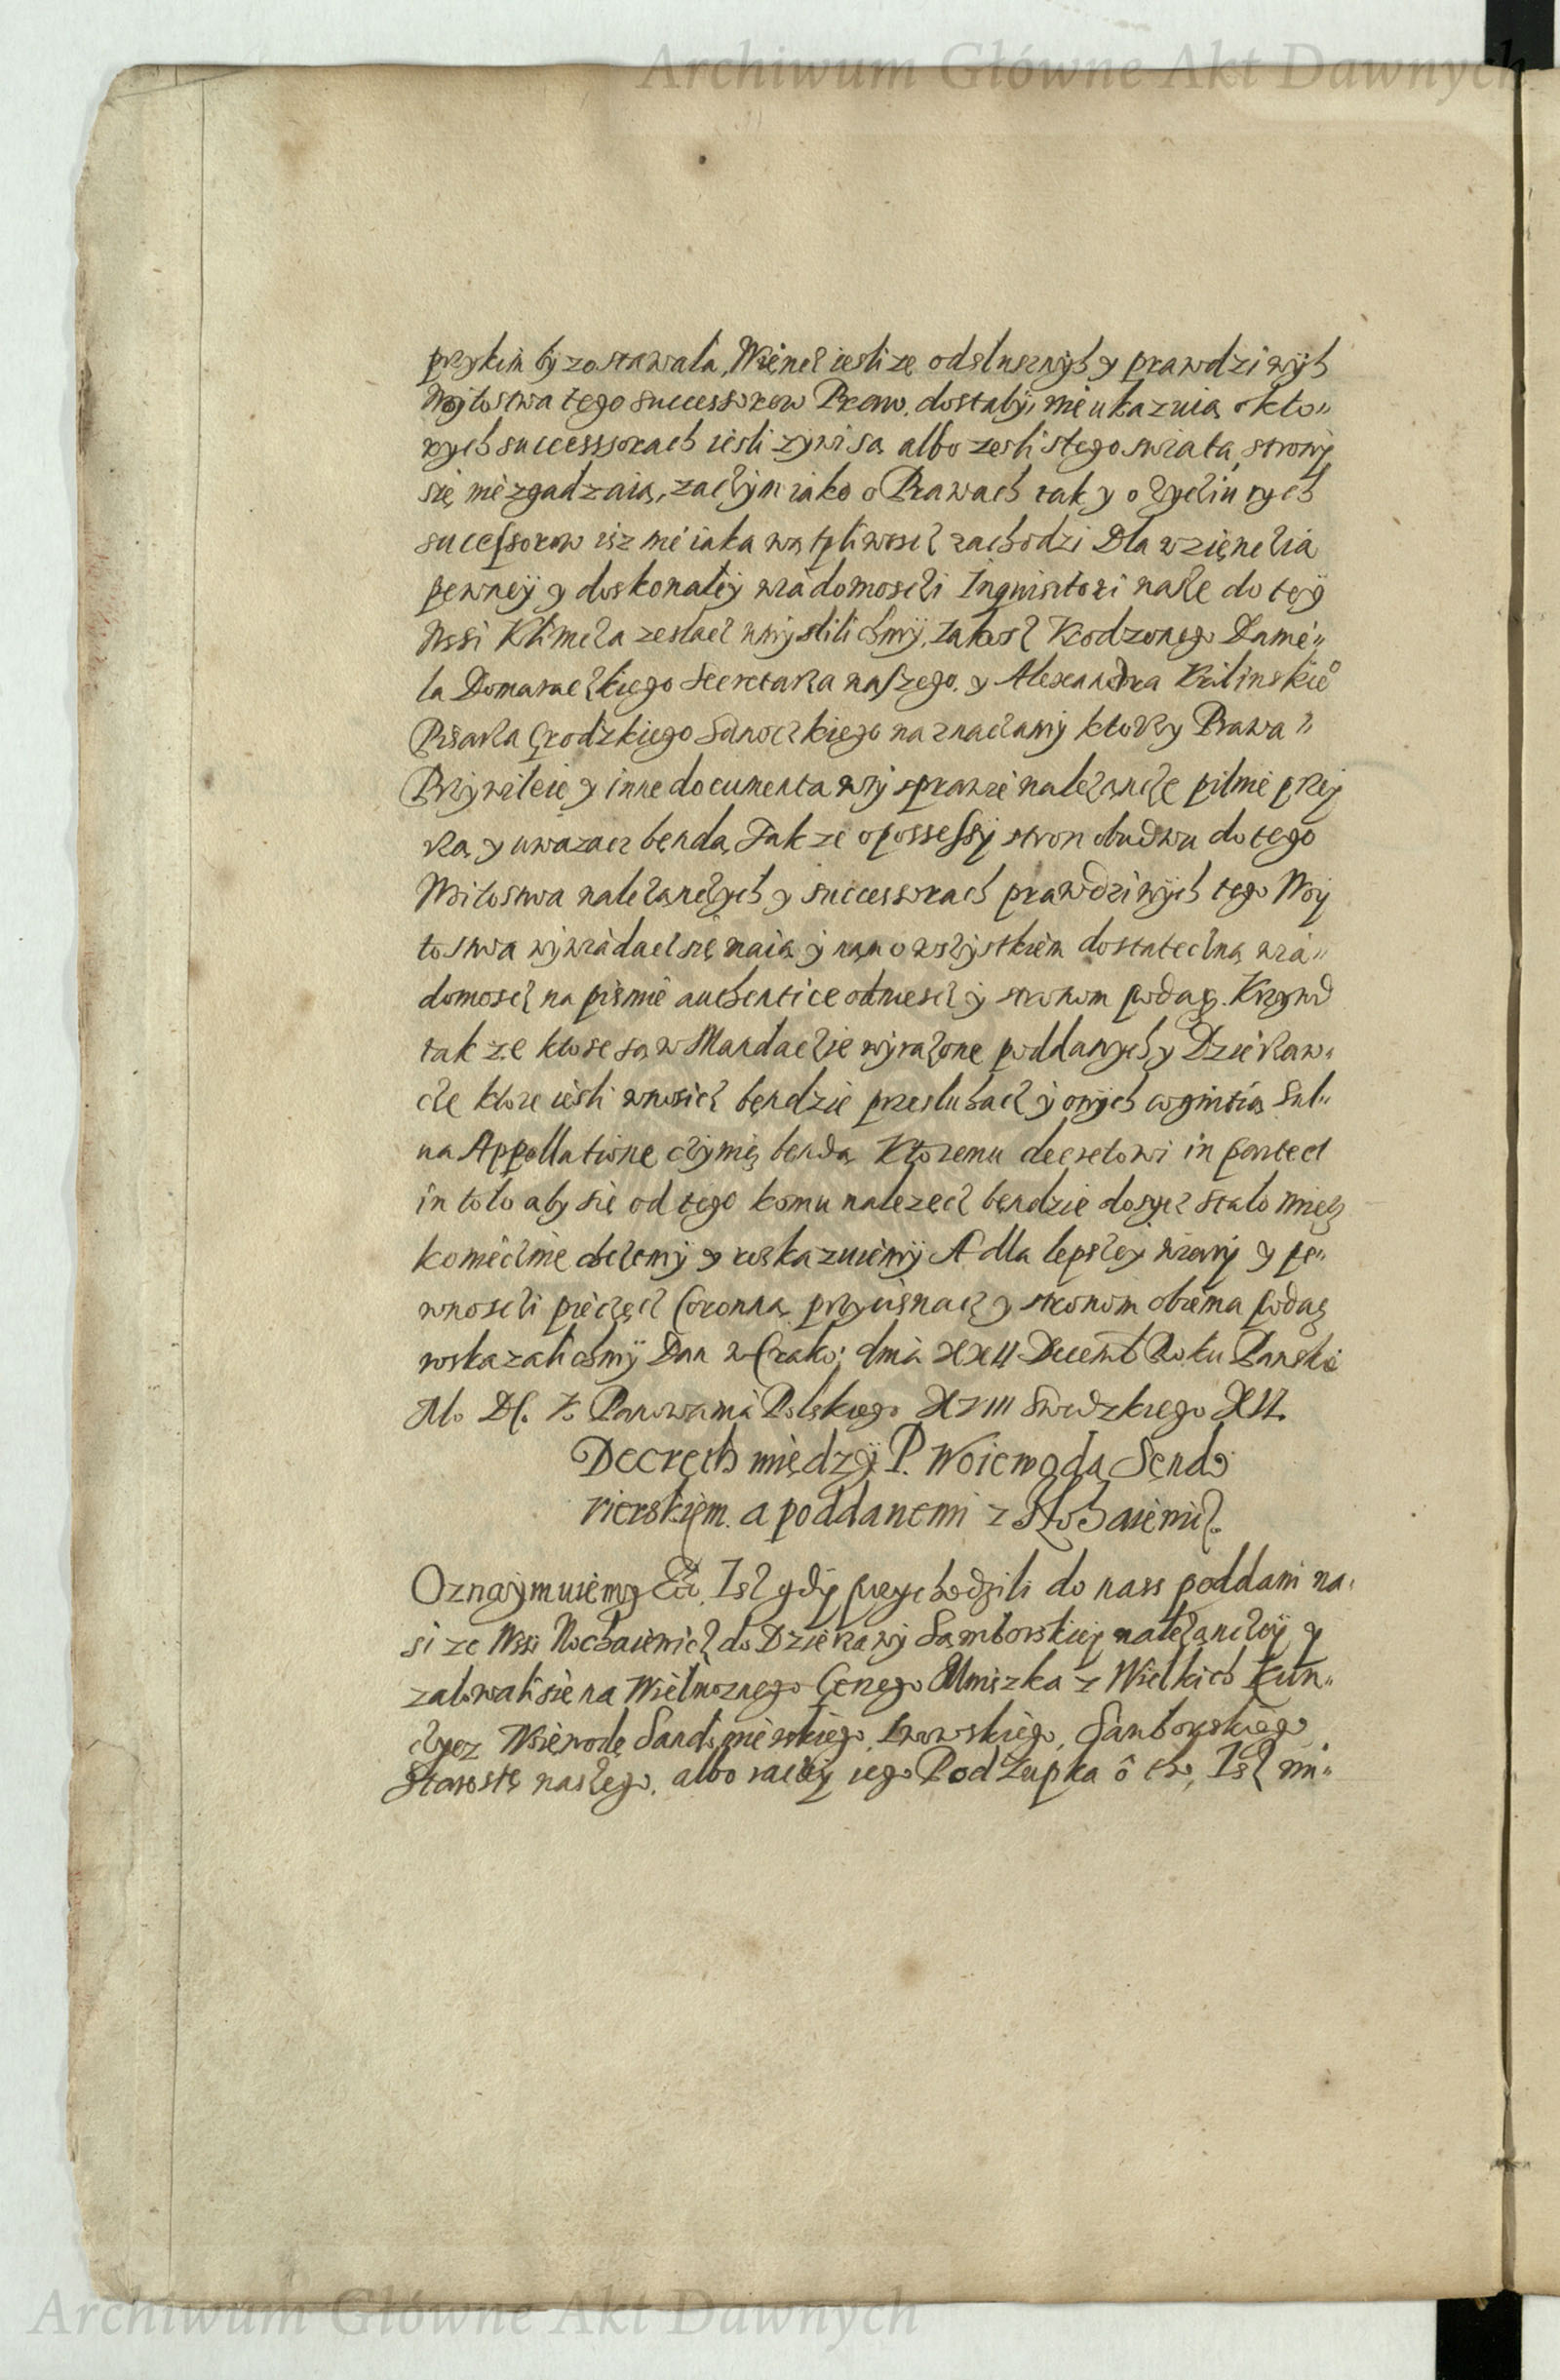 Archiwum Główne Akt Dawnych
przykim by zostawala, Wiencz iesli ze od slusznych y prawdziwych
Wojtostwa tego successorow Praw. dostali, nie ukazuią o kto„
rych successorach iesli zywi są albo zesli s tego swiata, strony
się nie zgadzaią, zaczym iako o Prawach tak y o zyciu tych
sucessorow isz nieiaka wątpliwoscz zachodzi Dla wzięncia
pewney y doskonałey wiadomosczi Inquisitori nasze do tey
Wssi Klimcza zeslacz umyslilichmy, Jakosz Urodzonego Danie„
la Domaraczkiego Secretarza naszego. y Alexandra Krilinskieo
Pisarza Grodzkiego Sanoczkiego naznaczamy ktorzy Prawa
Przywileie y inne documenta w tey sprawie nalezancze pilnie przey
rzą y uwazacz bęndą, Takze o possessÿ stron obudwu do tego
Woitostwa nalezanczych y successorach prawdziwych tego Woy
tostwa wywiadacz się maią y nam o wszystkiem dostateczną wia„
domoscz na pismie authentice odniescz y stronom podacz. Krzywd
takze ktore są w Mandaczie wyrazone poddanych y Dzierzaw„
cze ktore iesli wnosicz bęndzie przesluchacz y onych cognitią sal„
va Appellatione czynicz bendą Ktoremu decretowi in parte et
in toto aby się od tego komu nalezecz bęndzie dosycz stalo miecz
koniecznie chczemy y roskazuiemy A dla lepszey wiary y pe„
wnosczi pieczęcz Coronną przycisnacz y stronom obiema podacz
roskazalichmy Dan w Crako: dnia XXII Decemb Roku Panskie
Mo. Dc. Vo Panowania Polskiego XVIII Swedzkiego XII.
Decreth między P. Woiewodą Sendo
mierskiem. a poddanemi z
Oznaymuiemy Etc. Isz gdy przychodzili do nass poddani na„
si ze Wssi do Dzierzawy Samborskiey nalezanczey y
zalowali się na Wielmoznego Gerzego Mniszka z Wielkich Kun„
czycz Woiewodę Sandomierskiego, Lwowskiego, Samborskiego
Starostę naszego, albo raczey iego PodZupka o tho, Isz mi„
Archiwum Główne Akt Dawnych